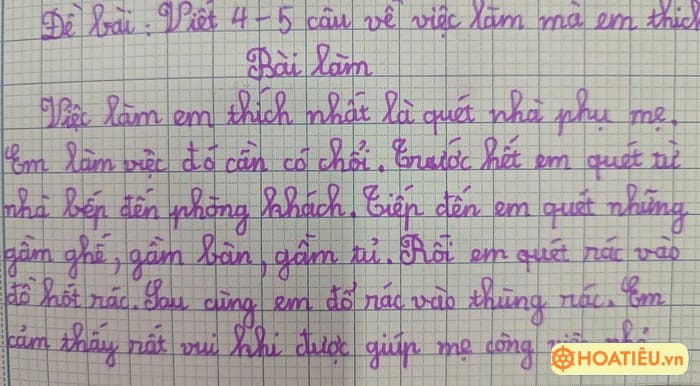 Đề bài: Viết 4-5 câu về việc làm mà em thích
Bài làm
Việc làm em thích nhất là quét nhà phụ mẹ.
Em làm việc đó cần có chổi. Trước hết em quét từ
nhà bếp đến phòng khách. Tiếp đến em quét những
gầm ghế, gầm bàn, gầm tủ. Rồi em quét rác vào
đồ hốt rác. Sau cùng em đổ rác vào thùng rác. Em
cảm thấy rất vui khi được giúp mẹ công
HOATIÊU.vn